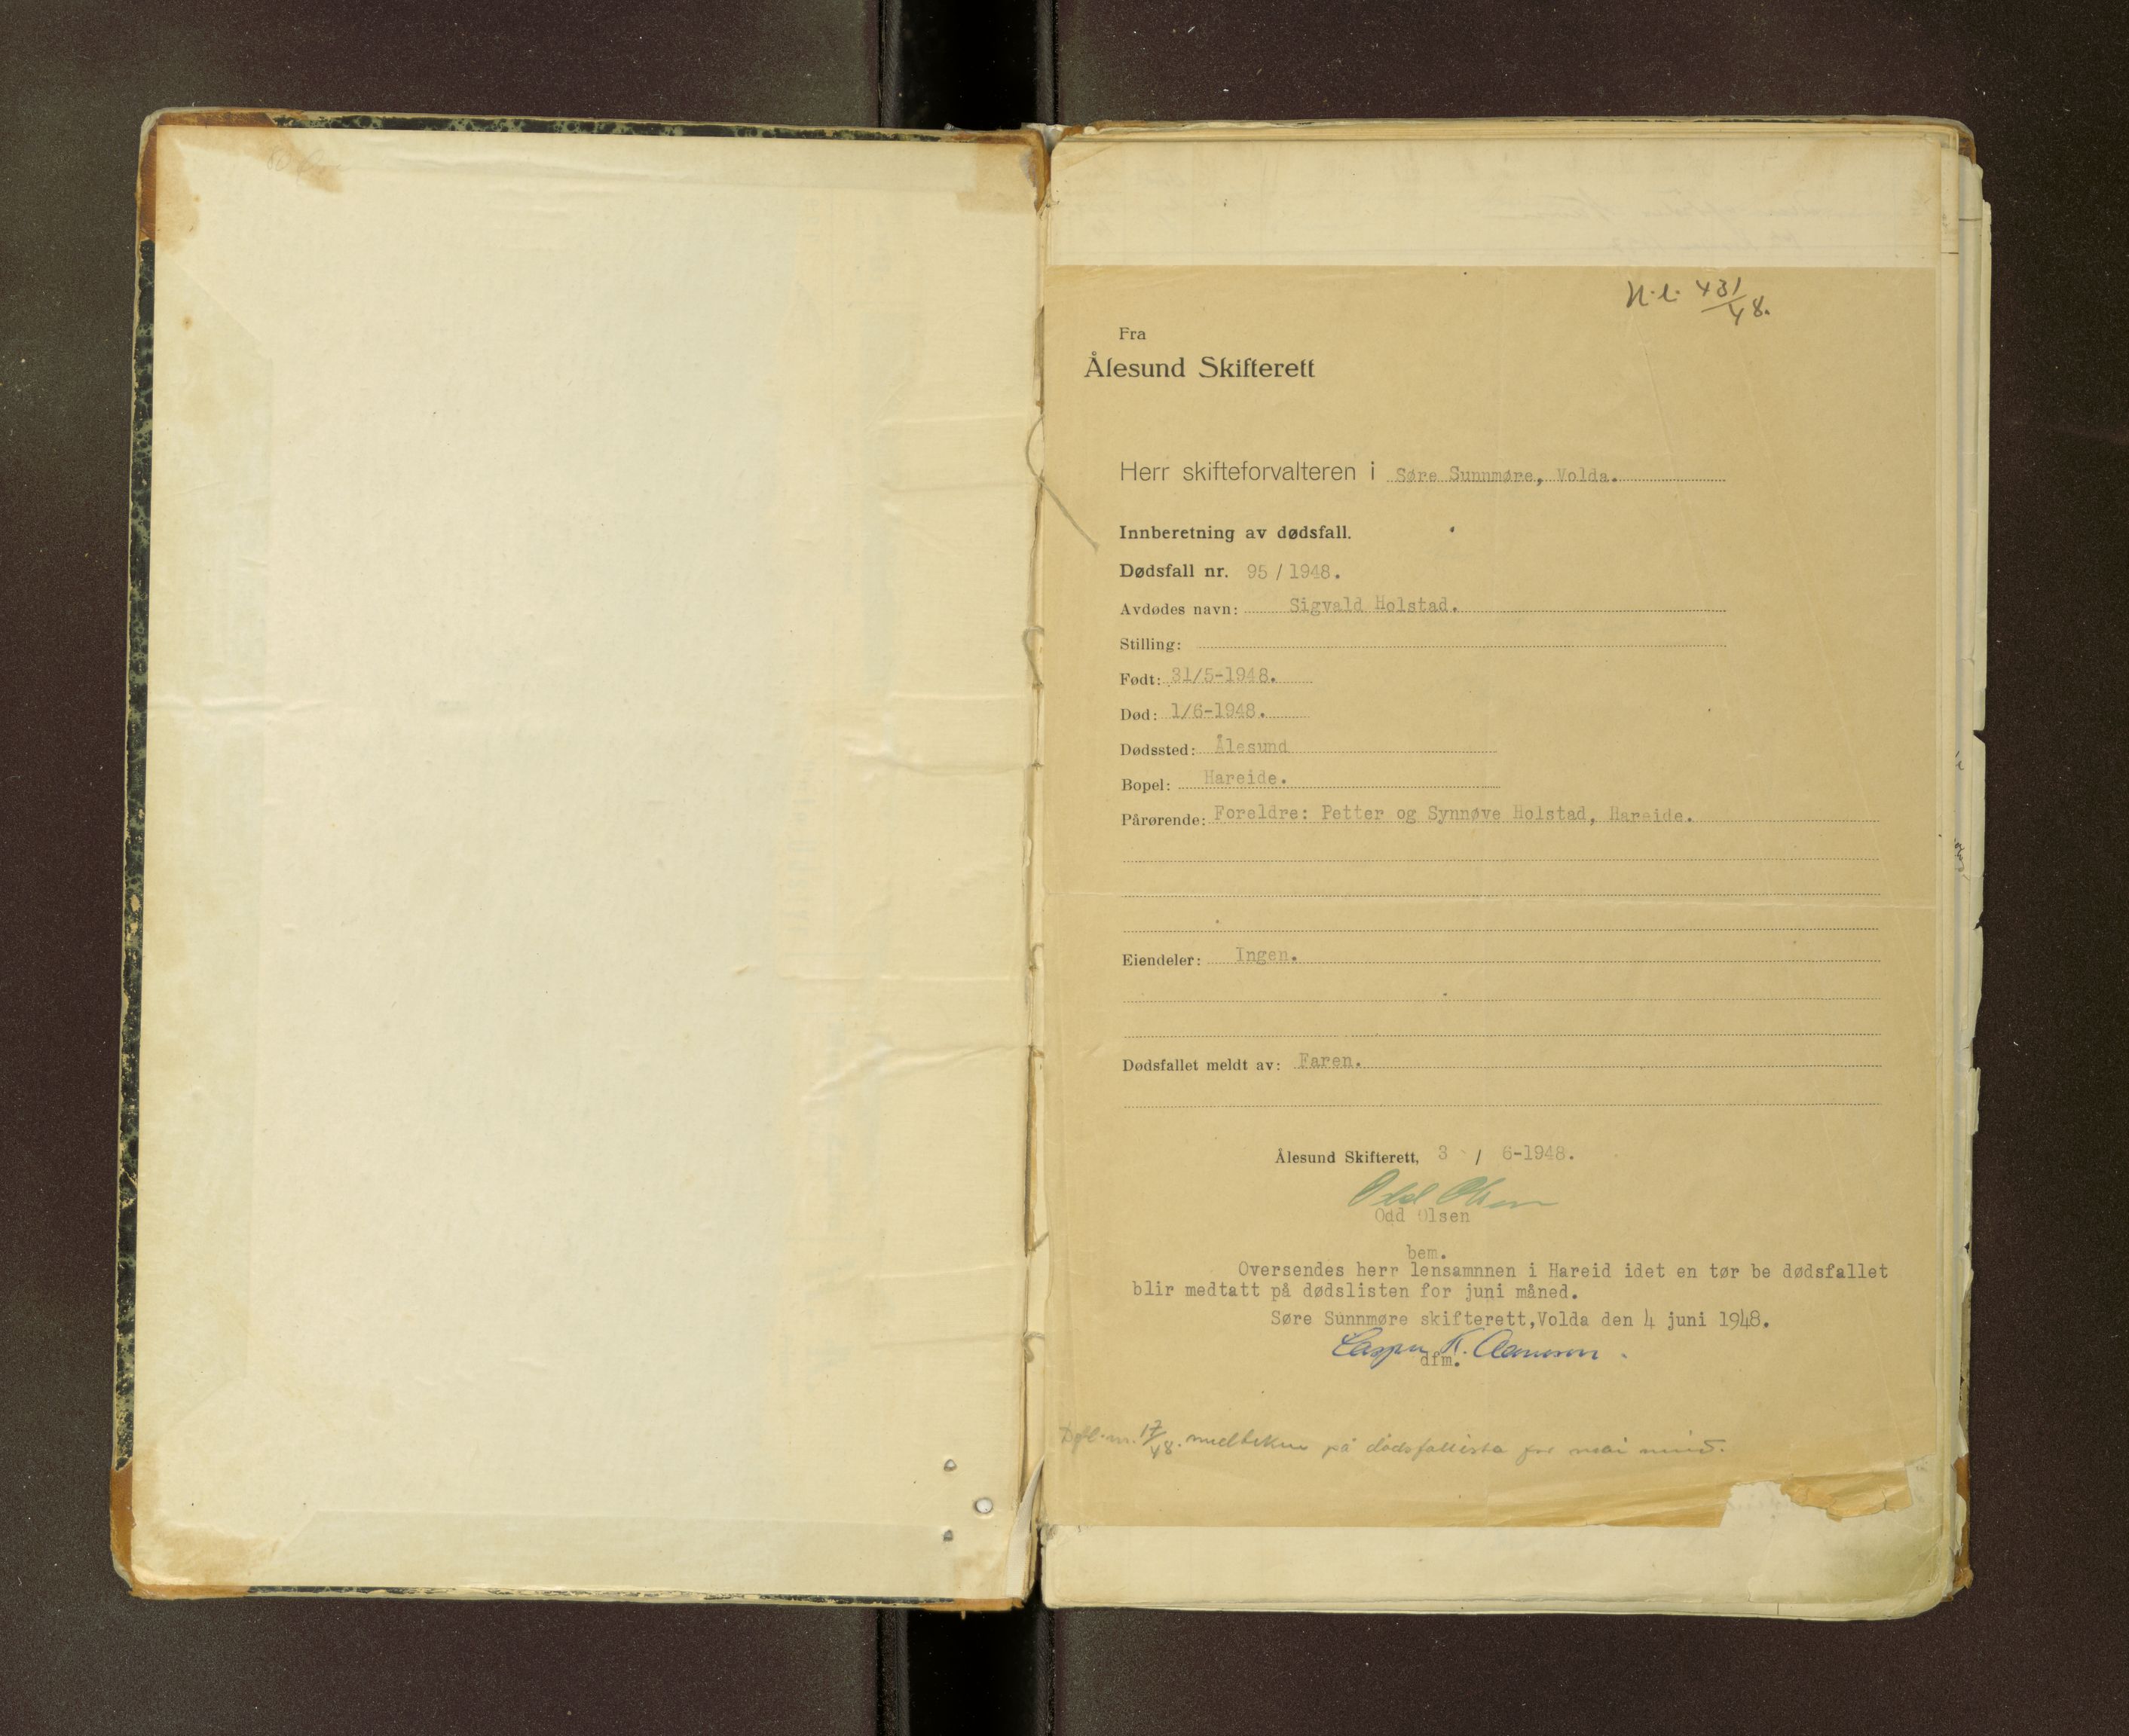 N.l. 431/48.
Fra
Ålesund Skifterett
Herr skifteforvalteren i Søre Sunnmøre, Volda.
Innberetning av dødsfall.
Dødsfall nr. 95 / 1948.
Avdødes navn: Sigvald Holstad.
Stilling:
Født: 31/5-1948.
Død: 1/6-1948.
Dødssted: Ålesund
Bopel: Hareide.
Pårørende: Foreldre: Petter og Synnøve Holstad, Hareide.
Eiendeler: Ingen.
Dødsfallet meldt av: Faren.
Ålesund Skifterett, 3 / 6-1948.
Odd Olsen
Odd Olsen
bem.
Oversendes herr lensamnnen i Hareid idet en tør be dødsfallet
blir medtatt på dødslisten for juni måned.
Søre Sunnmøre skifterett,Volda den 4 juni 1948.
dfm.
17/48. på dødsfallista for mai